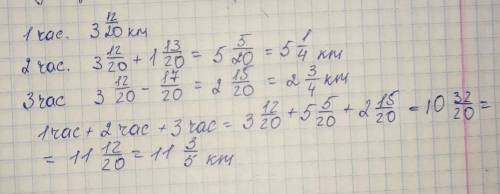 1 час. 3 12/20 км
2 час. 3 12/20 + 1 13/20 = 5 5/20 = 5 1/4 км
3 час 3 12/20 - 17/20 = 2 15/20 = 2 3/4 км
1 час + 2 час + 3 час = 3 12/20 + 5 5/20 + 2 15/20 = 10 32/20 =
= 11 12/20 = 11 3/5 км